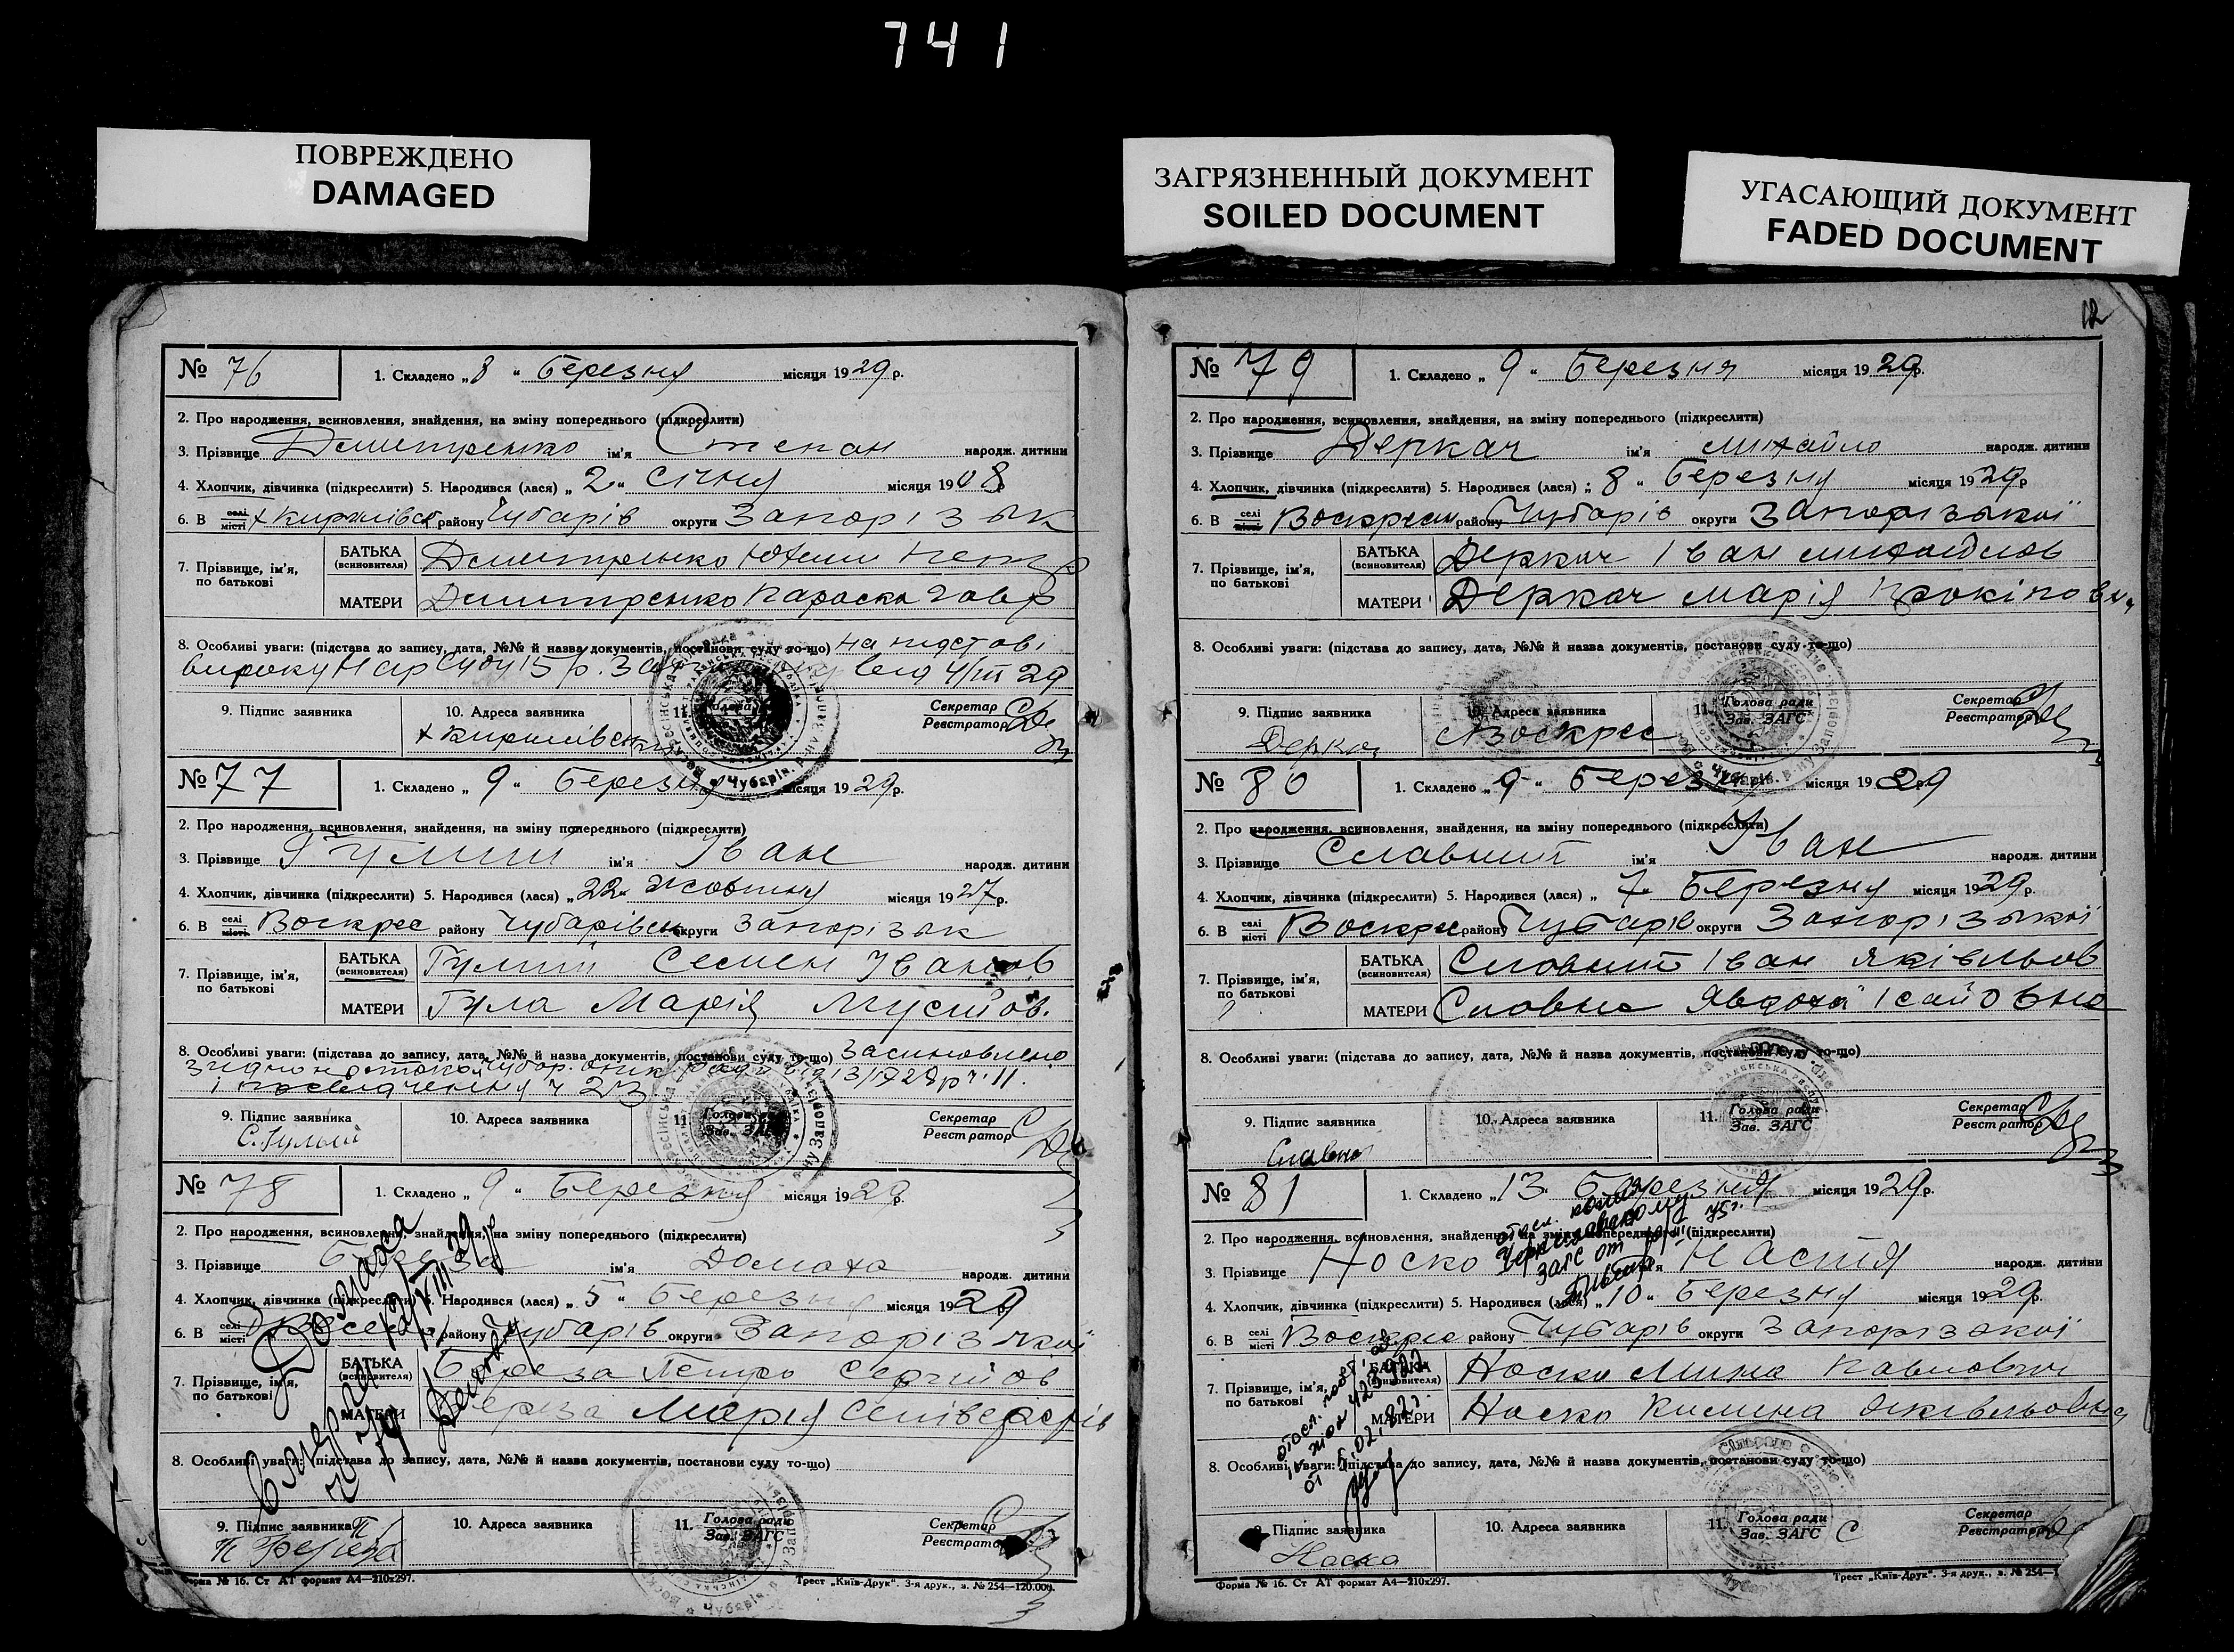 741
ПОВРЕЖДЕНО
DAMAGED
ЗАГРЯЗНЕННЫЙ ДОКУМЕНТ
SOILED DOCUMENT
УГАСАЮЩИЙ ДОКУМЕНТ
FADED DOCUMENT
№ 76
1. Складено „ 8 “ Березня місяця 1929 р.
2. Про народження, всиновлення, знайдення, на зміну попереднього (підкреслити)
3. Прізвище Дмитренко ім'я Степан народж. дитини
4. Хлопчик, дівчинка (підкреслити) 5. Народився (лася) „ 2 “ січня місяця 1908
6. В селі місті х Кирилівск району Чубарів округи Запорізьк
7. Прізвище, ім'я, по батькові
БАТЬКА (всиновителя) Дмитренко
МАТЕРИ Дмитренко Параска Гавр
8. Особливі уваги: (підстава до запису, дата, №№ й назва документів, постанови суду то-що) на підставі
вироку НарСуду 15 р. від 4/III 29
9. Підпис заявника
10. Адреса заявника
х Кирилівск
11. Голова
Секретар
Реєстратор
№ 77
1. Складено „ 9 “ Березня місяця 1929 р.
2. Про народження, всиновлення, знайдення, на зміну попереднього (підкреслити)
3. Прізвище Гулий ім'я Іван народж. дитини
4. Хлопчик, дівчинка (підкреслити) 5. Народився (лася) „ 22 “ жовтня місяця 1927 р.
6. В селі місті Воскрес району Чубарівськ округи Запорізьк
7. Прізвище, ім'я, по батькові
БАТЬКА (всиновителя) Гулий Семен Іванов
МАТЕРИ Гула Марія
8. Особливі уваги: (підстава до запису, дата, №№ й назва документів, постанови суду то-що) Засиновлено
згідно Чубар. ч. 11.
і посвідчення ч 23
9. Підпис заявника
С. Гулый
10. Адреса заявника
11. Голова ради
Зав. ЗАГС
Секретар
Реєстратор
№ 78
1. Складено „ 9 “ Березня місяця 1929 р.
2. Про народження, всиновлення, знайдення, на зміну попереднього (підкреслити)
3. Прізвище Береза ім'я Домаха народж. дитини
4. Хлопчик, дівчинка (підкреслити) 5. Народився (лася) „ 5 “ Березня місяця 1929
6. В селі місті району Чубарів округи Запорізької
7. Прізвище, ім'я, по батькові
БАТЬКА (всиновителя) Береза Петро Сергійов
МАТЕРИ Береза Марія
Домаха
8. Особливі уваги: (підстава до запису, дата, №№ й назва документів, постанови суду то-що)
9. Підпис заявника
П Береза
10. Адреса заявника
11. Голова ради
Зав. ЗАГС
Секретар
Реєстратор
Форма № 16. Ст АТ формат А4—210х297.
Трест „Київ-Друк“. 3-я друк., з. № 254—120.000.
12
№ 79
1. Складено „ 9 “ Березня місяця 1929 р.
2. Про народження, всиновлення, знайдення, на зміну попереднього (підкреслити)
3. Прізвище Деркач ім'я Михайло народж. дитини
4. Хлопчик, дівчинка (підкреслити) 5. Народився (лася) „ 8 “ Березня місяця 1929 р
6. В селі місті Воскресен району Чубарів округи Запорізької
7. Прізвище, ім'я, по батькові
БАТЬКА (всиновителя) Деркач Іван Михайлов
МАТЕРИ Деркач Марія Прокіповна
8. Особливі уваги: (підстава до запису, дата, №№ й назва документів, постанови суду то-що)
9. Підпис заявника
Деркач
10. Адреса заявника
Воскрес
11. Голова ради
Зав. ЗАГС
Секретар
Реєстратор
№ 80
1. Складено „ 9 “ Березня місяця 1929
2. Про народження, всиновлення, знайдення, на зміну попереднього (підкреслити)
3. Прізвище Славний ім'я Іван народж. дитини
4. Хлопчик, дівчинка (підкреслити) 5. Народився (лася) „ 7 Березня місяця 1929 р.
6. В селі місті Воскрес району Чубарів округи Запорізької
7. Прізвище, ім'я, по батькові
БАТЬКА (всиновителя) Славний Іван Яківльов
МАТЕРИ Славна Явдоха Ісайовна
8. Особливі уваги: (підстава до запису, дата, №№ й назва документів, постанови суду то-що)
9. Підпис заявника
Славна
10. Адреса заявника
11. Голова ради
Зав. ЗАГС
Секретар
Реєстратор
№ 81
1. Складено „ 13 “ Березня місяця 1929 р.
2. Про народження, всиновлення, знайдення, на зміну попереднього (підкреслити)
3. Прізвище Носко ім'я Настя народж. дитини
4. Хлопчик, дівчинка (підкреслити) 5. Народився (лася) „ 10 “ Березня місяця 1929 р.
6. В селі місті Воскрес району Чубарів округи Запорізької
7. Прізвище, ім'я, по батькові
БАТЬКА (всиновителя) Носко Мина Павлович
МАТЕРИ Носко Килина Яківльовна
8. Особливі уваги: (підстава до запису, дата, №№ й назва документів, постанови суду то-що)
9. Підпис заявника
Носко
10. Адреса заявника
11. Голова ради
Зав. ЗАГС
Секретар
Реєстратор
Форма № 16. Ст АТ формат А4—210х297.
Трест „Київ-Друк“. 3-я друк., з. № 254—1